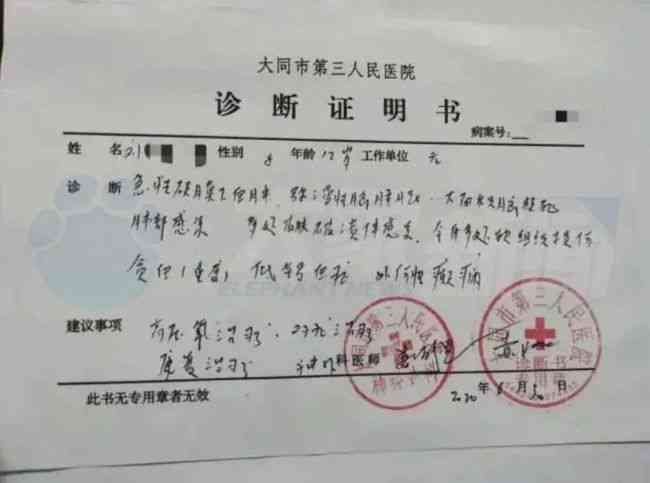 大同市第三人民医院
诊断证明书
病案号:
姓名 刘 性别 年龄 12岁 工作单位 无
诊断 急性硬膜下血肿、弥漫性脑肿胀、大面积脑梗死
肺部感染 多处皮肤破溃伴感染、全身多处软组织挫伤
贫血(重度) 低蛋白血症 外伤性癫痫
ELEPHANT NEWS
建议事项 高压氧治疗、对症治疗
康复治疗 神外科医师
第三人民医院
大同市第三人民医院
诊断书
专用章
2020年6月30日
此书无专用章者无效